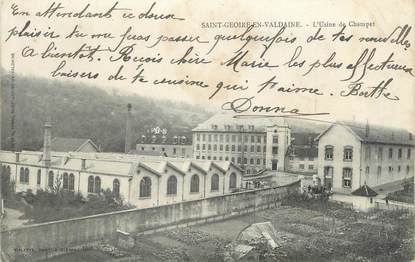 En attendant ce doux
SAINT-GEOIRE-EN-VALDAINE. - L'Usine de Champet
plaisir tu me peux pas quelquefois de tes nouvelles
A bientôt. Reçois chère Marie les plus affectueux
baisers de ta cousine qui t'aime. Berthe
Donna